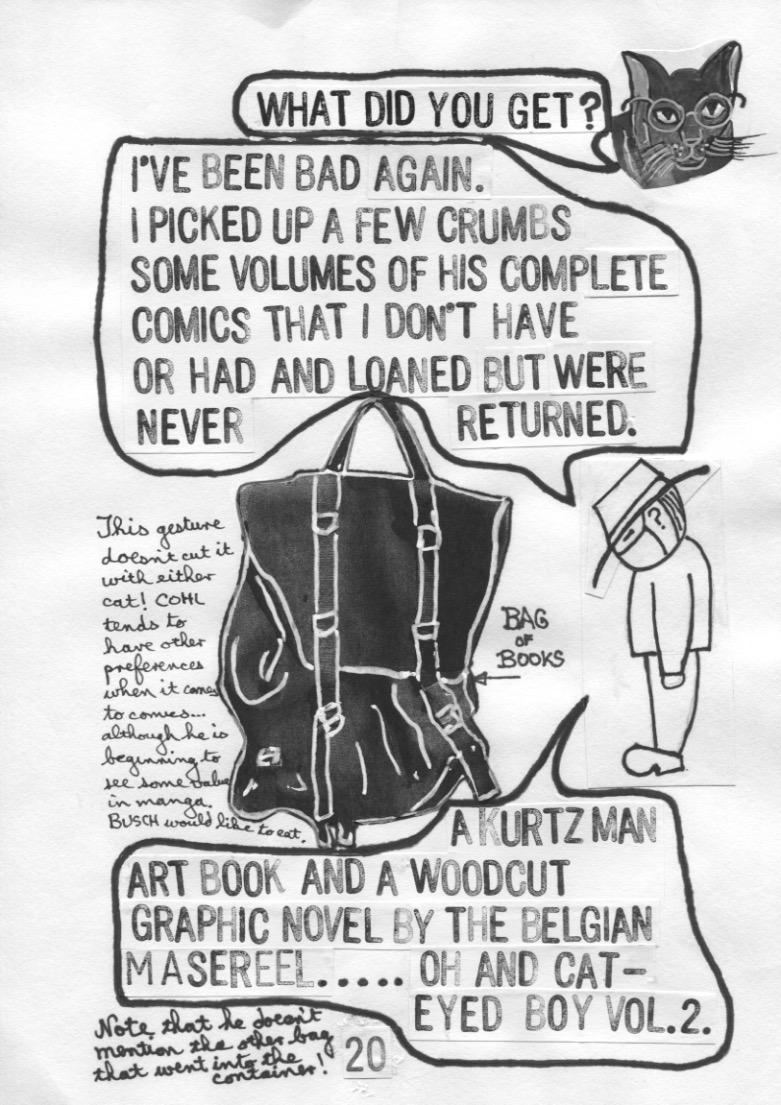 WHAT DID YOU GET?
I'VE BEEN BAD AGAIN.
I PICKED UP A FEW CRUMBS
SOME VOLUMES OF HIS COMPLETE
COMICS THAT I DON'T HAVE
OR HAD AND LOANED BUT WERE
NEVER RETURNED.
This gesture
doesn't cut it
with either
cat! COHL
tends to
have other
preferences
when it comes
to comics...
although he is
beginning to
see some value
in manga.
BUSCH would like to eat.
BAG
OF
BOOKS
?
A KURTZMAN
ART BOOK AND A WOODCUT
GRAPHIC NOVEL BY THE BELGIAN
MASEREEL..... OH AND CAT-
EYED BOY VOL.2.
Note that he doesn't
mention the other bag
that went into the
container!
20